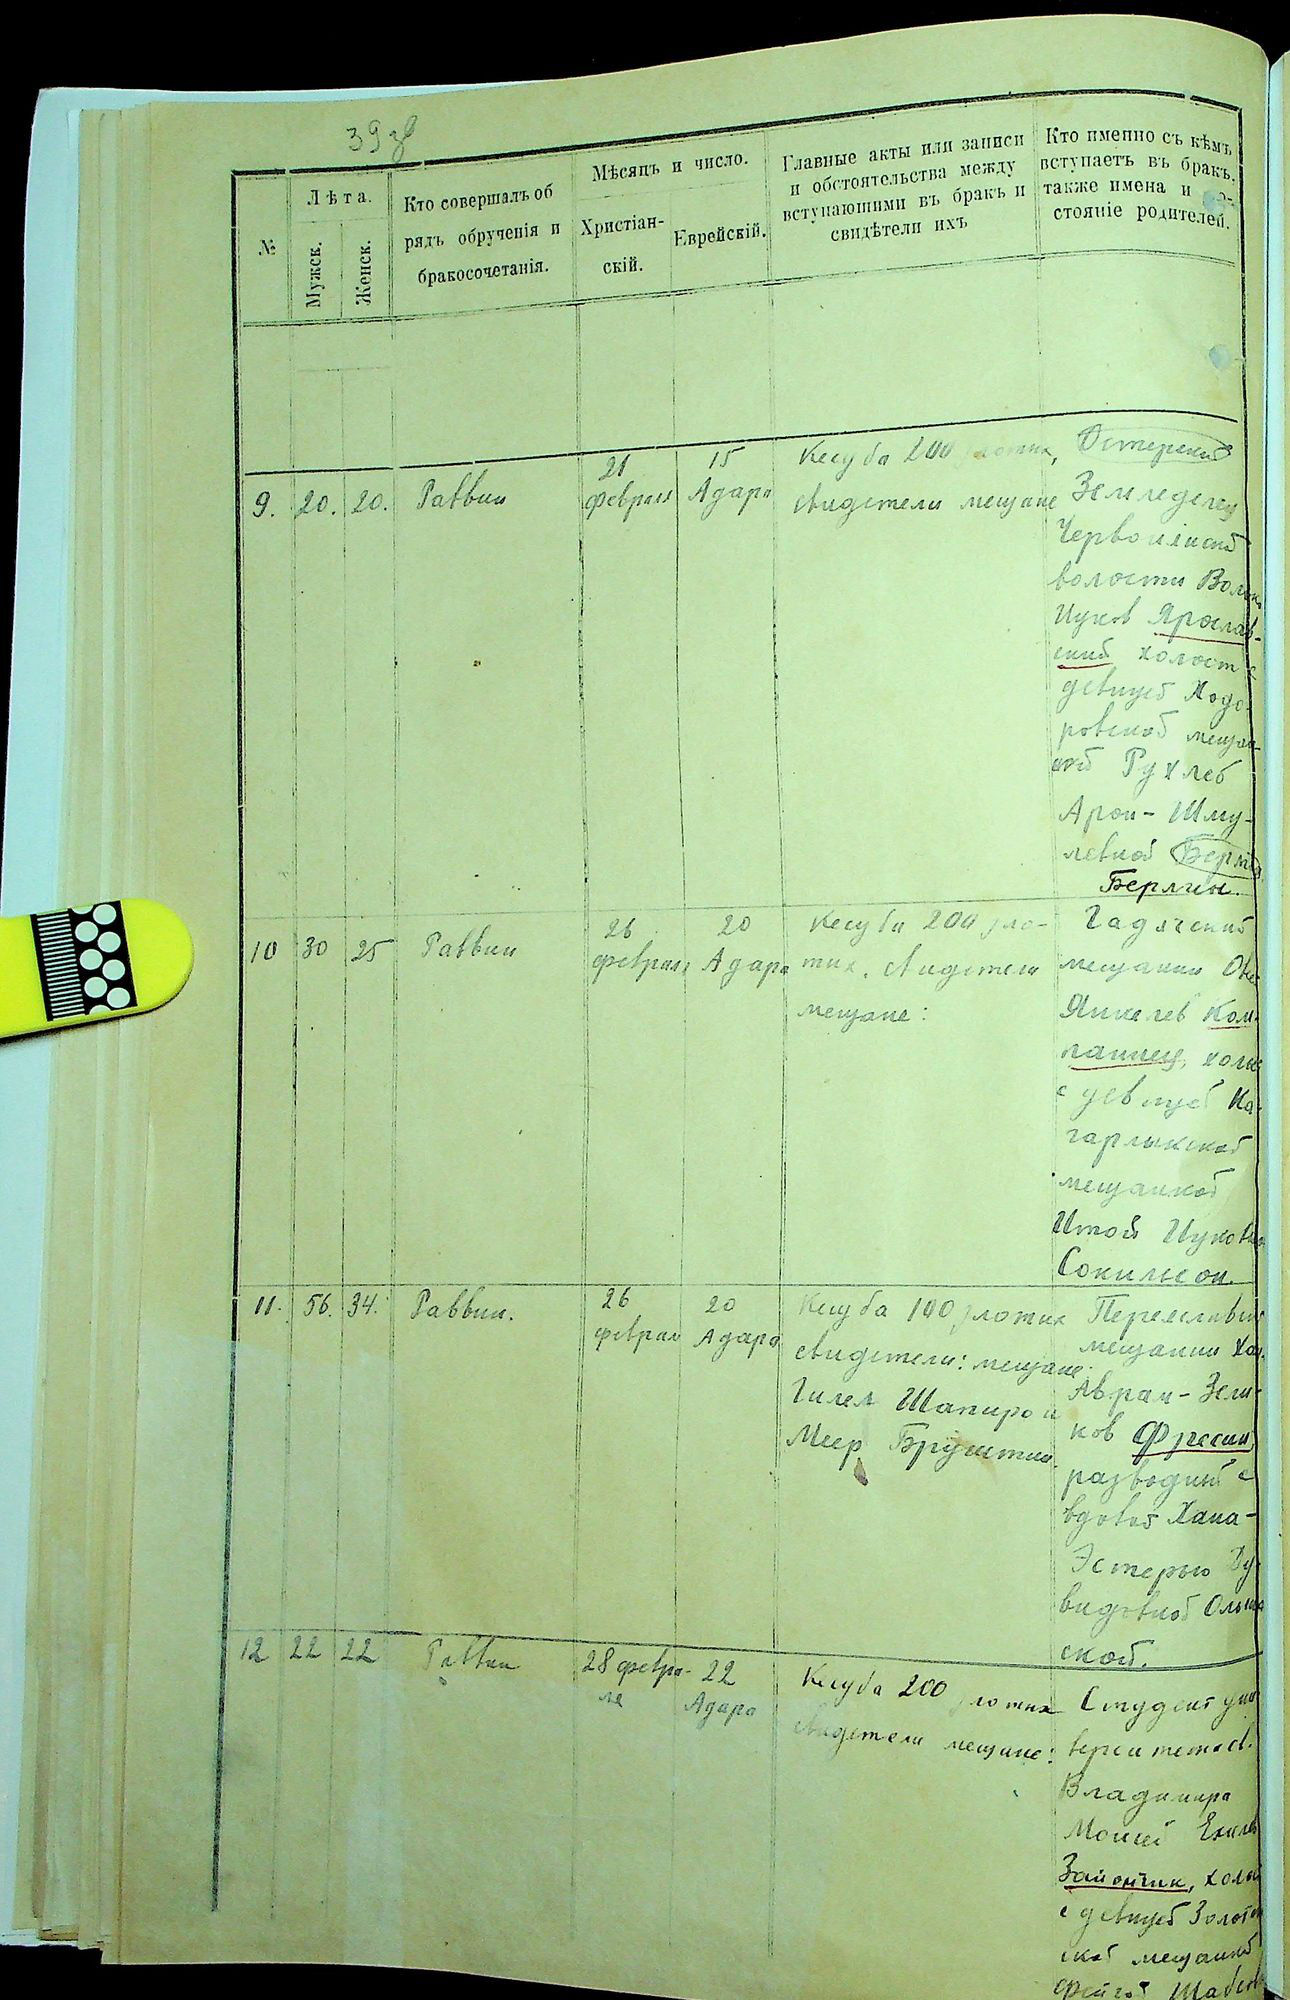 39 об
№
Лѣта.
Мужск.
Женск.
Кто совершалъ об
рядъ обрученія и
бракосочетанія.
Мѣсяцъ и число.
Христіан-
скій.
Еврейскій.
Главные акты или записи
и обстоятельства между
вступающими въ бракъ и
свидѣтели ихъ
Кто именно съ кѣмъ
вступаетъ въ бракъ,
также имена и
стояніе родителей.
9. 20. 20. Раввин
21
февраля
15
Адара
Кесуба 200 злотих,
свидетели мещане
Остерский
Земледелец
волости
Ицков Ярослав-
ский холост с
девицей Ходо-
ровской мещан-
кой Рухлей
Арон-Шму-
левной
Берлин.
10 30 25 Раввин
26
февраля
20
Адара
Кесуба 200 зло-
тих, свидетели
мещане:
Гадячский
мещанин
Янкелев Ком-
паниец, холост
с девицей Ка-
гарлыкской
мещанкой
Итой Ицковной
11. 56. 34. Раввин.
26
феврал
20
Адара
Кесуба 100 злотих
свидетели: мещане
Гилел Шапиро и
Меер
Переяславский
мещанин
Аврам-Зели-
ков
разводный с
вдовой Хана-
Эстерью Ду-
видовной
ской.
12 22 22 Раввин
28 февра-
ля
22
Адара
Кесуба 200 злотих
свидетели мещане:
Студент уни
верситета св.
Владимира
Моисей
Зайончик, холост
с девицей Золотон
ской мещанкой
Фейгой